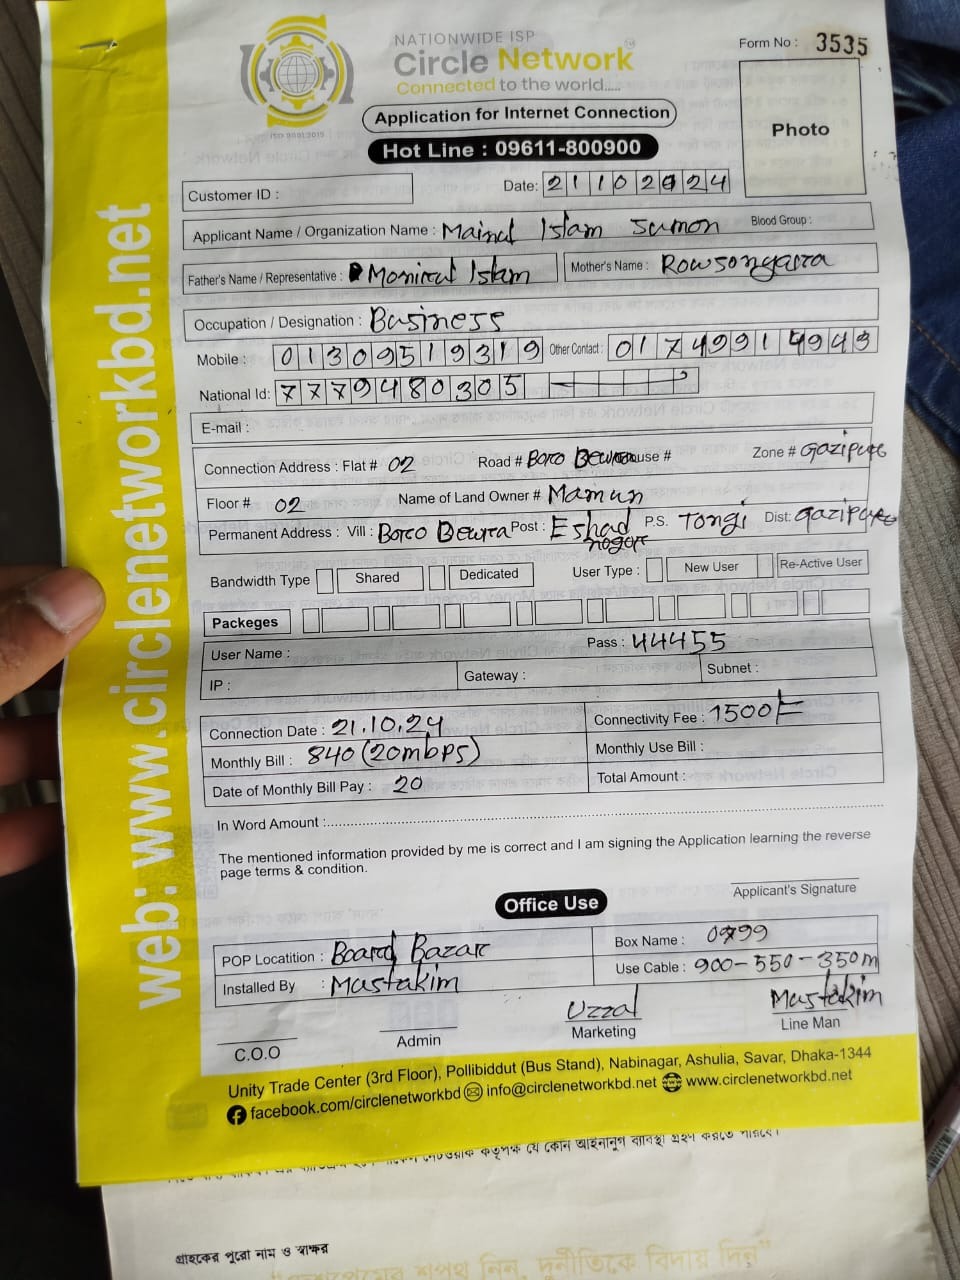 NATIONWIDE ISP
Circle Network
Connected to the world.....
ISO 9001:2015
Form No : 3535
Application for Internet Connection
Hot Line : 09611-800900
Photo
Customer ID :
Date: 21102024
Applicant Name / Organization Name : Mainul Islam Sumon Blood Group :
Father's Name / Representative : Monirul Islam Mother's Name : Rowsongara
Occupation / Designation : Business
Mobile : 01309519319 Other Contact : 01749914943
National Id: 7779480305
E-mail :
Connection Address : Flat # 02 Road # Boro Dewra House # Zone # Gazipur
Floor # 02 Name of Land Owner # Mamun
Permanent Address : Vill : Boro Dewra Post : Eshad nagor P.S. Tongi Dist: Gazipur
Bandwidth Type Shared Dedicated User Type : New User Re-Active User
Packeges
User Name : Pass : 44455
IP : Gateway : Subnet :
Connection Date : 21.10.24 Connectivity Fee : 1500/=
Monthly Bill : 840 (20mbps) Monthly Use Bill :
Date of Monthly Bill Pay : 20 Total Amount :
In Word Amount :
The mentioned information provided by me is correct and I am signing the Application learning the reverse
page terms & condition.
Applicant's Signature
Office Use
POP Locatition : Board Bazar Box Name : 0799
Installed By : Mustakim Use Cable : 900-550-350m
Uzzal Mustakim
C.O.O Admin Marketing Line Man
Unity Trade Center (3rd Floor), Pollibiddut (Bus Stand), Nabinagar, Ashulia, Savar, Dhaka-1344
facebook.com/circlenetworkbd info@circlenetworkbd.net www.circlenetworkbd.net
web: www.circlenetworkbd.net
কর্তৃপক্ষ যে কোন আইনানুগ ব্যবস্থা গ্রহণ করতে পারবে।
গ্রাহকের পুরো নাম ও স্বাক্ষর
শপথ নিন, দুর্নীতিকে বিদায় দিন"